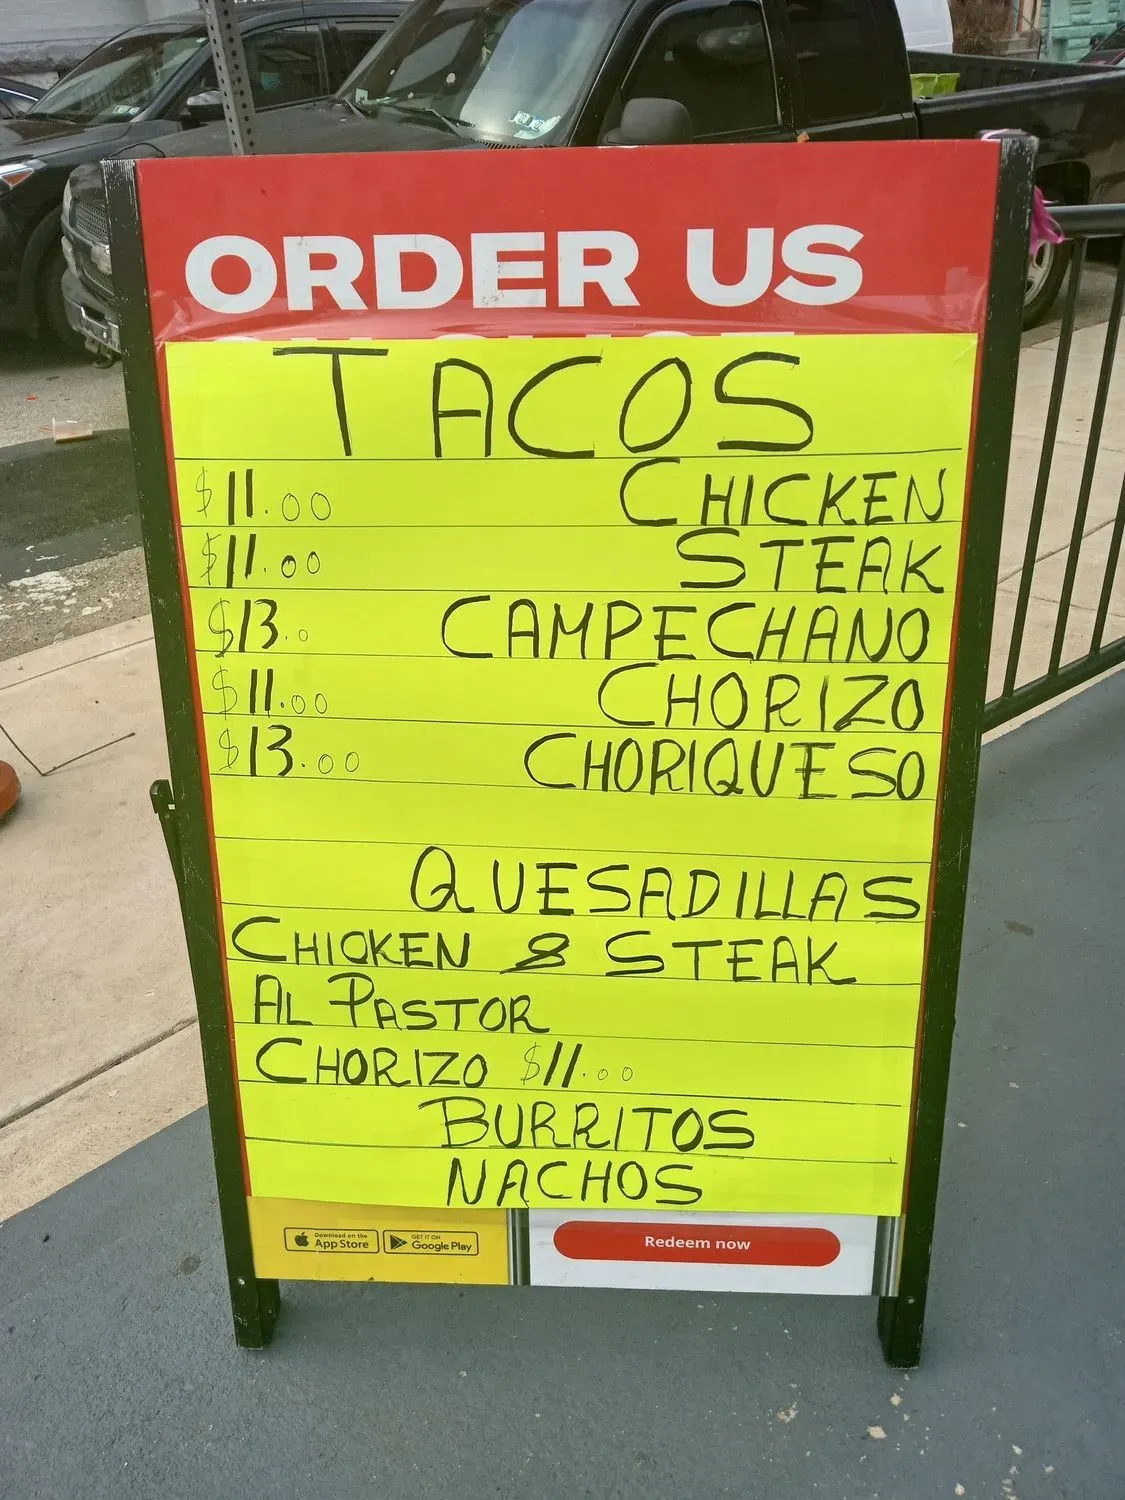 ORDER US
TACOS
$11.00 CHICKEN
$11.00 STEAK
$13.0 CAMPECHANO
$11.00 CHORIZO
$13.00 CHORIQUESO
QUESADILLAS
CHICKEN & STEAK
AL PASTOR
CHORIZO $11.00
BURRITOS
NACHOS
Download on the App Store
GET IT ON Google Play
Redeem now